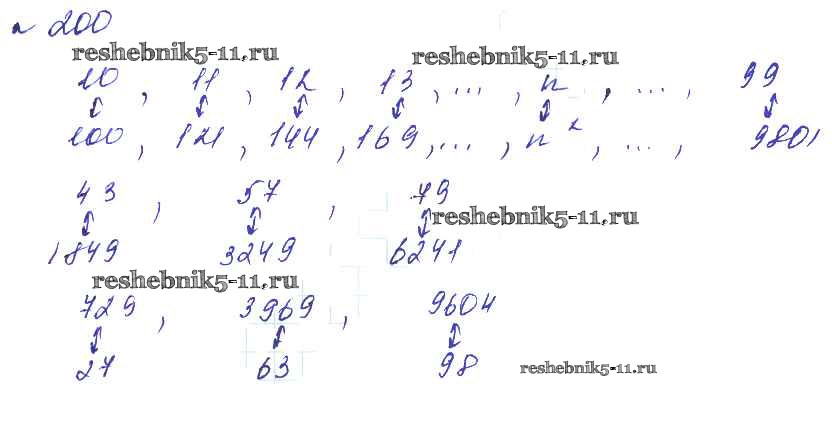 № 200
reshebnik5-11.ru reshebnik5-11.ru
10, 11, 12, 13, ..., n, ..., 99
↕ ↕ ↕ ↕ ↕ ↕
100, 121, 144, 169, ..., n², ..., 9801
43, 57, 79
↕ ↕ ↕ reshebnik5-11.ru
1849 3249 6241
reshebnik5-11.ru
729, 3969, 9604
↕ ↕ ↕
27 63 98 reshebnik5-11.ru